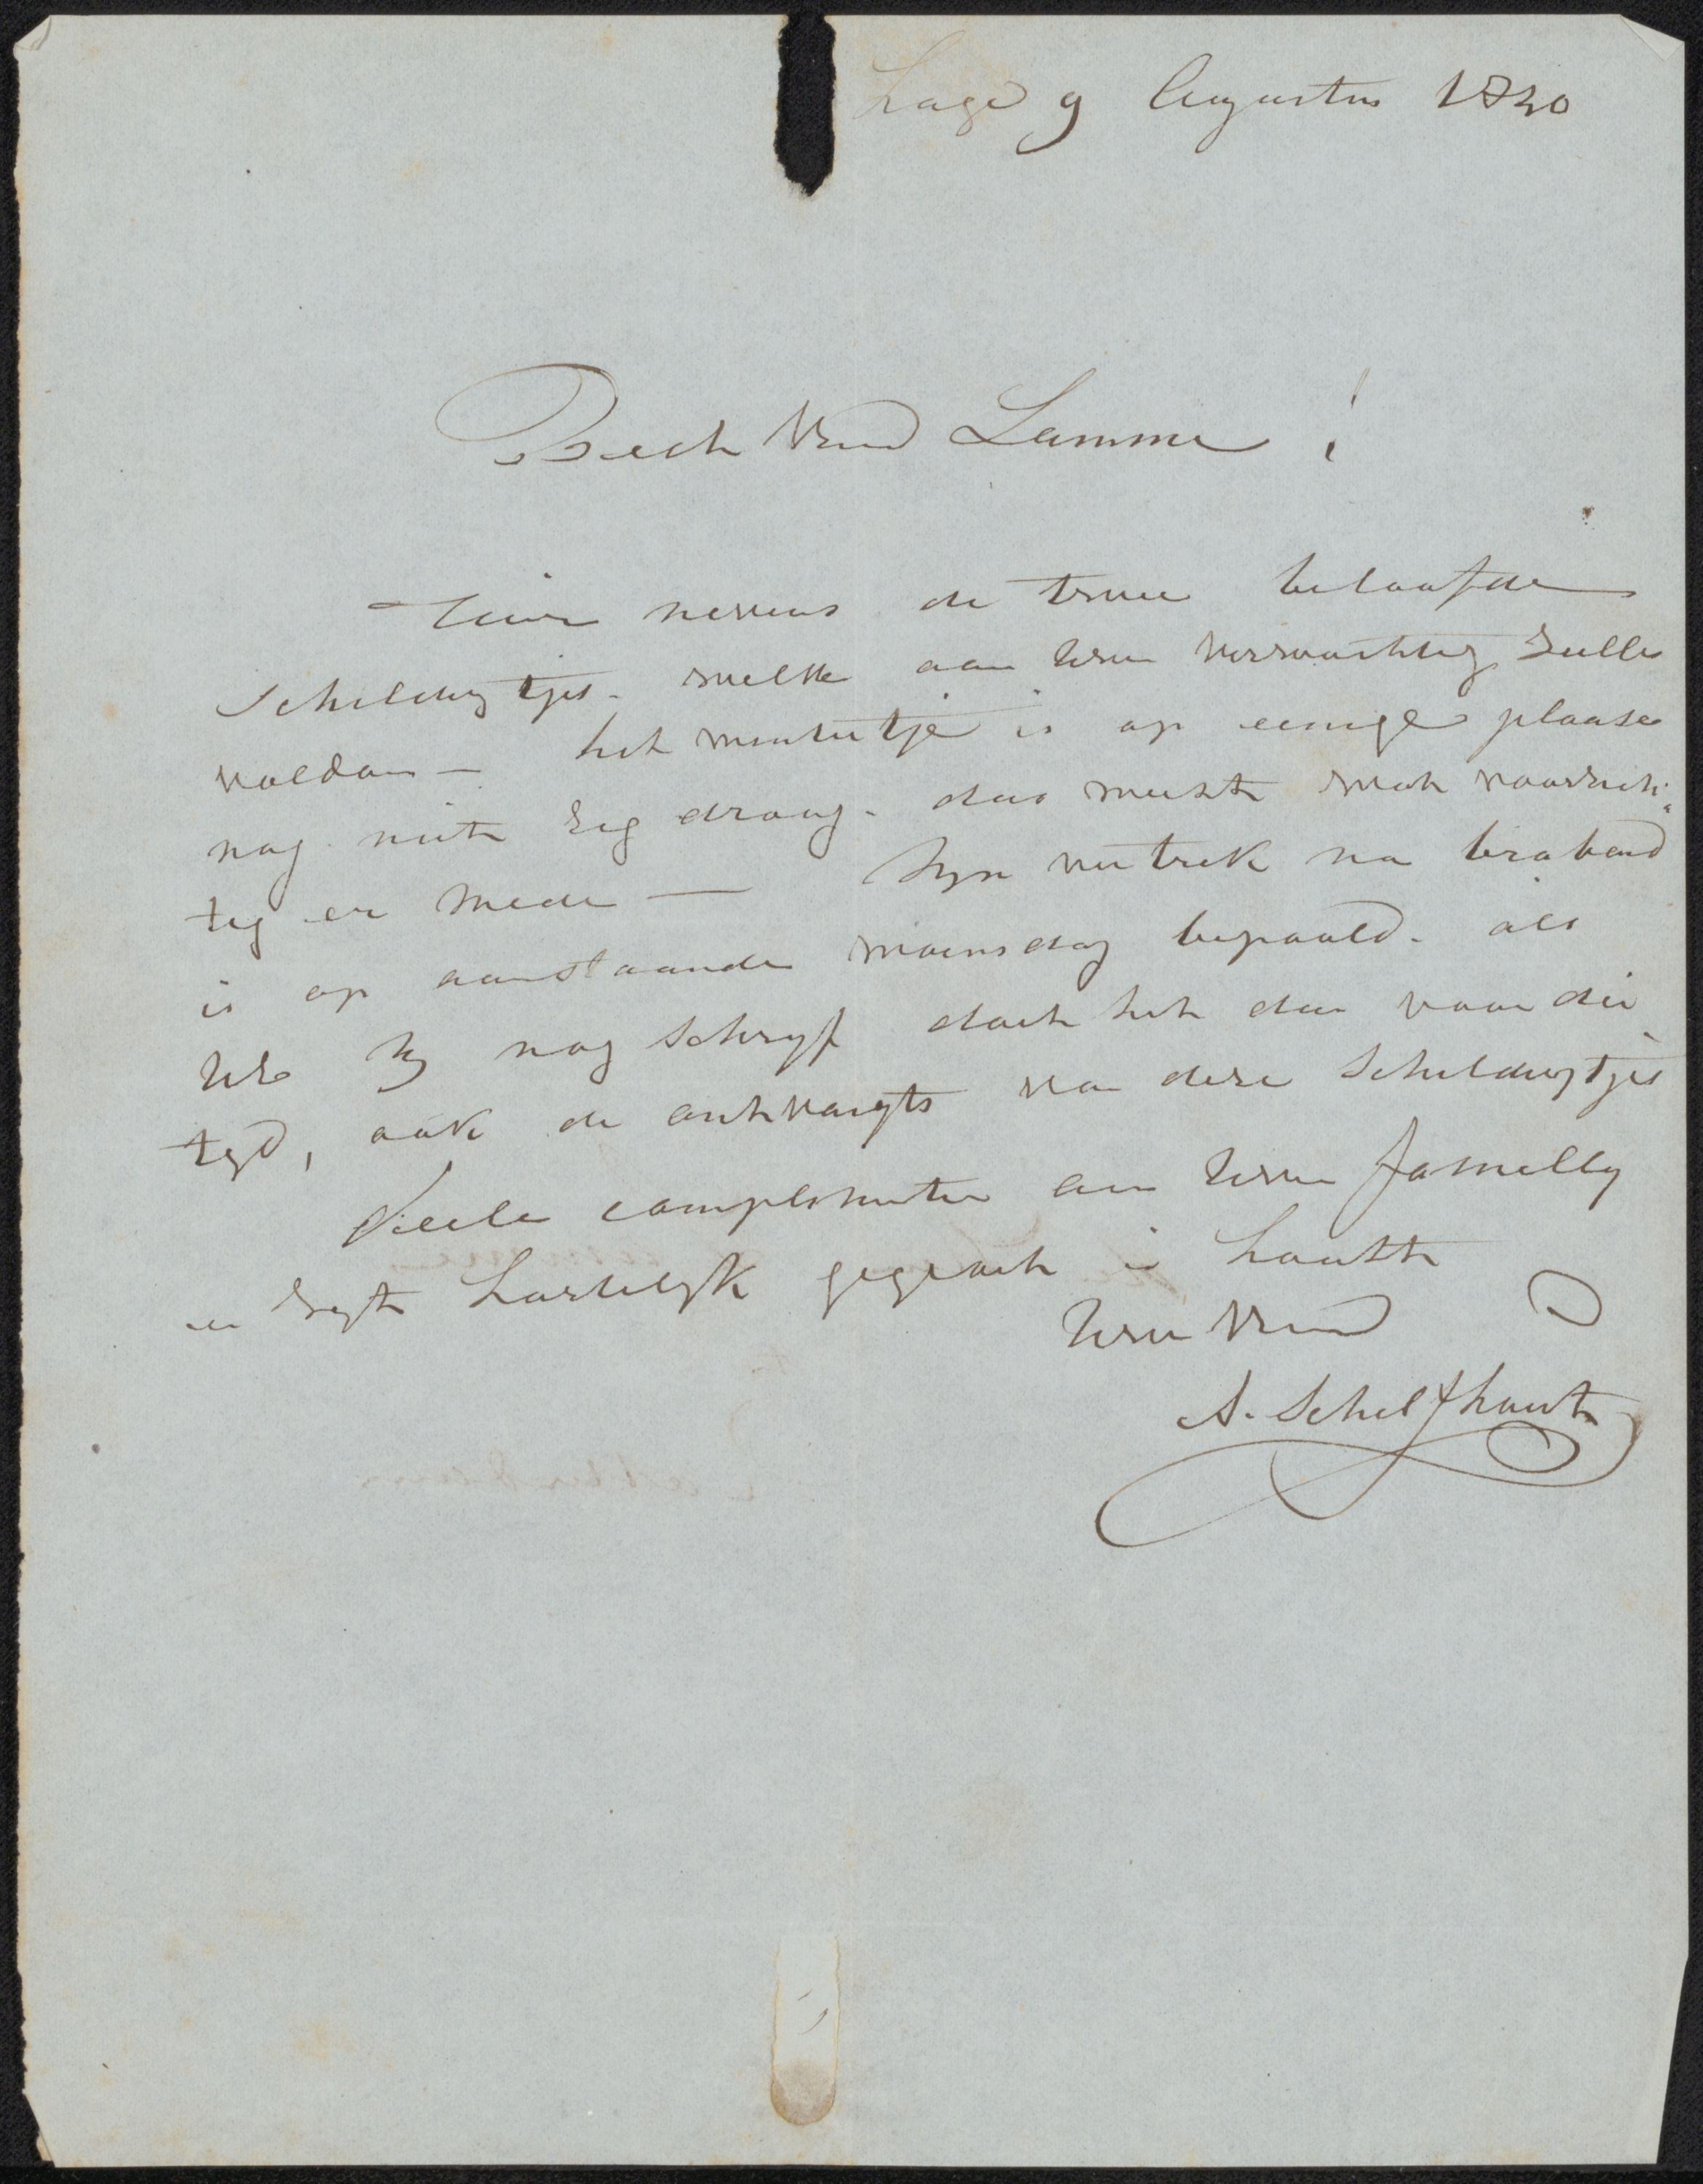 Hage 9 Augustus 1840
Besten Vriend Lamme!
Hier nevens de twee beloofde
Schilderytjes. welke aan Uwe verwachting zulle
voldoen — het wintertje is op eenige plaatse
nog niet zeg droog. dus weest wat voorzich:
tig er mede — Myn vertrek na braband
is op aanstaande woensdag bepaald. als
UE my nog schryf doet het dan voor die
tyd, ook de ontvangts van deze Schilderytjes
Veele complimenten aan Uwe familly
en zyt hartelyk gegroet in haast
Uwe Vriend
A. Schelfhout